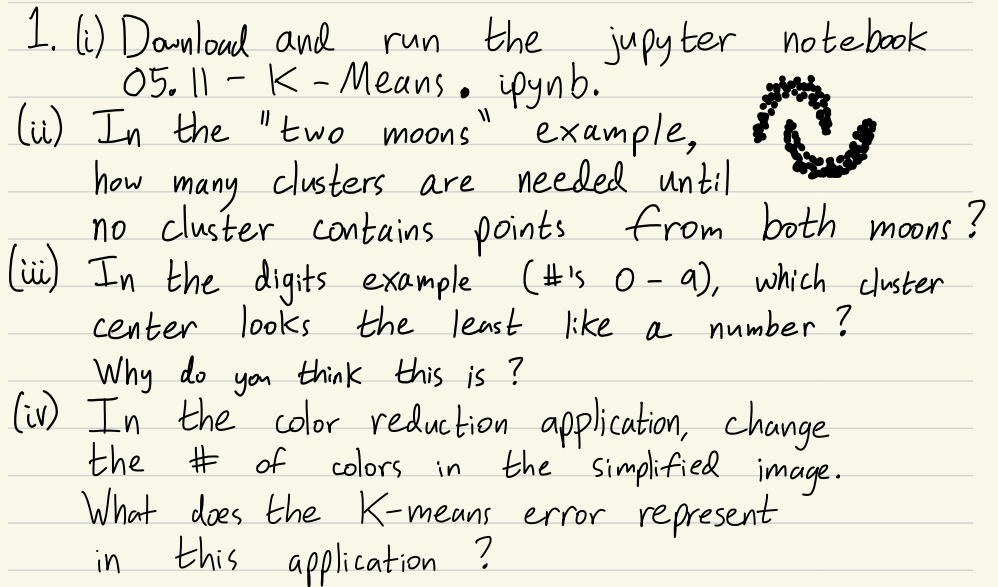 1. (i) Download and run the jupyter notebook
05.11 - K - Means . ipynb.
(ii) In the "two moons" example,
how many clusters are needed until
no cluster contains points from both moons?
(iii) In the digits example (#'s 0 - 9), which cluster
center looks the least like a number?
Why do you think this is?
(iv) In the color reduction application, change
the # of colors in the simplified image.
What does the K-means error represent
in this application?